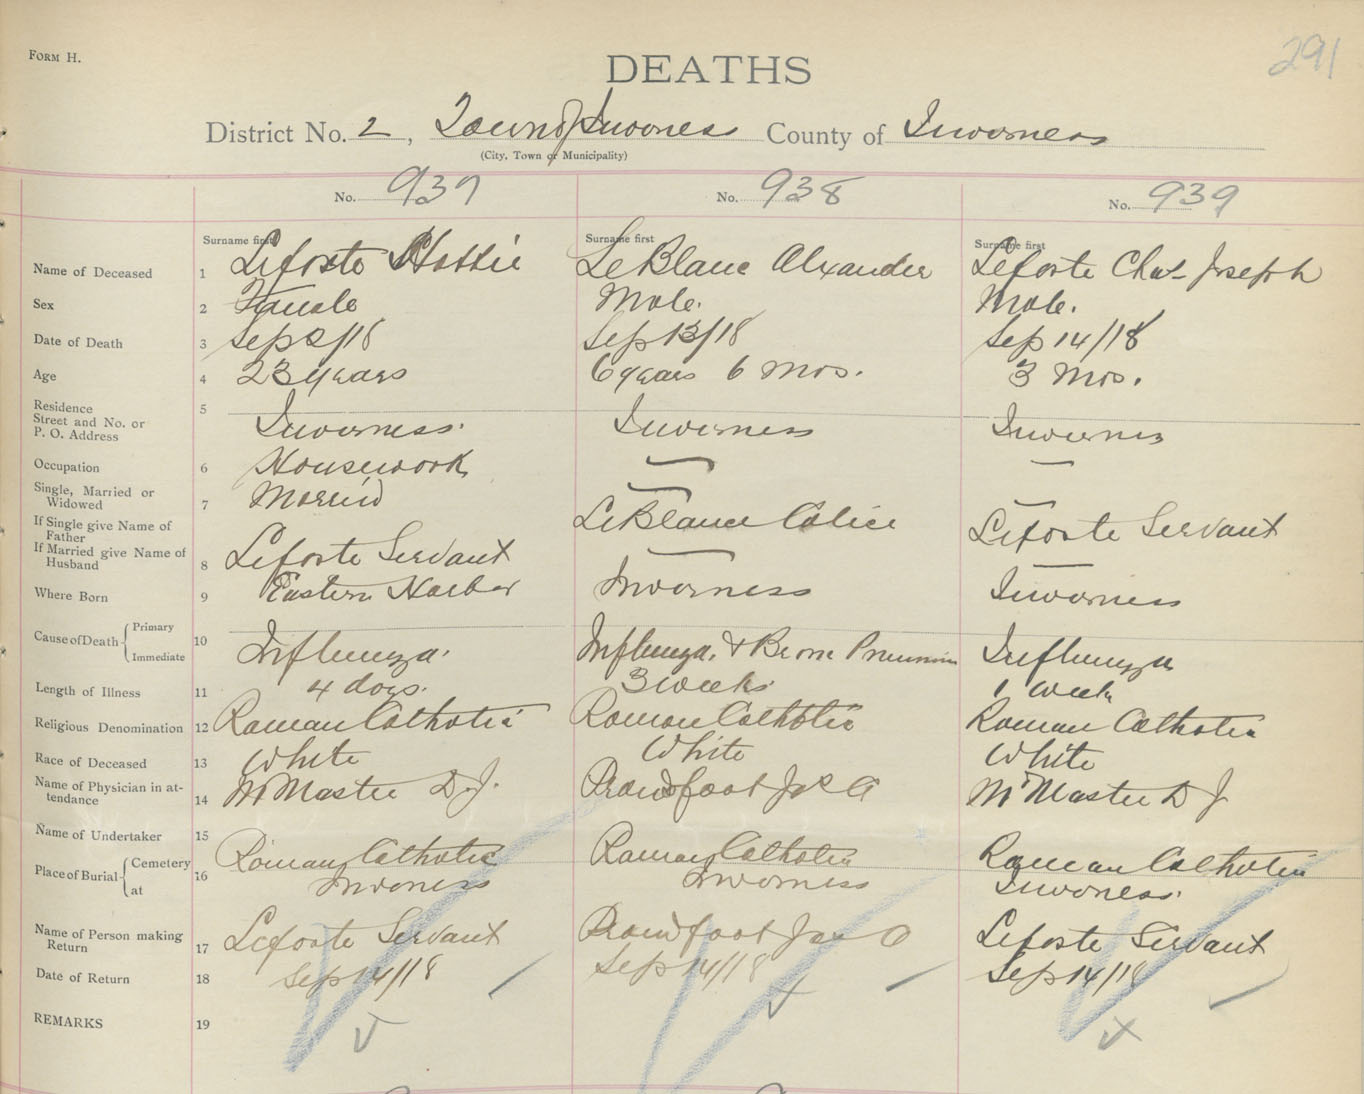 FORM H.
291
DEATHS
District No. 2, Town of Inverness County of Inverness
(City, Town or Municipality)
No. 937 No. 938 No. 939
Surname first Surname first Surname first
Name of Deceased 1 Leforte Hattie LeBlanc Alexander Leforte Chas Joseph
Sex 2 Female Male. Male.
Date of Death 3 Sep 2/18 Sep 13/18 Sep 14/18
Age 4 23 years 6 years 6 Mos. 3 Mos.
Residence
Street and No. or
P. O. Address 5 Inverness. Inverness Inverness
Occupation 6 Housework —
Single, Married or
Widowed 7 Married —
If Single give Name of
Father LeBlanc Leforte Servant
If Married give Name of
Husband 8 Leforte Servant —
Where Born 9 Eastern Harbor Inverness Inverness
Cause of Death { Primary
Immediate 10 Influenza. Influenza, & Bron Pneumonia Influenza
Length of Illness 11 4 days. 3 weeks. 1 week
Religious Denomination 12 Roman Catholic Roman Catholic Roman Catholic
Race of Deceased 13 White White White
Name of Physician in at-
tendance 14 McMaster D. J. Proudfoot Jas A McMaster D J
Name of Undertaker 15
Place of Burial { Cemetery
at 16 Roman Catholic Roman Catholic Roman Catholic
Inverness Inverness Inverness.
Name of Person making
Return 17 Leforte Servant Proudfoot Jas A Leforte Servant
Date of Return 18 Sep 14/18 Sep 14/18 Sep 14/18
REMARKS 19